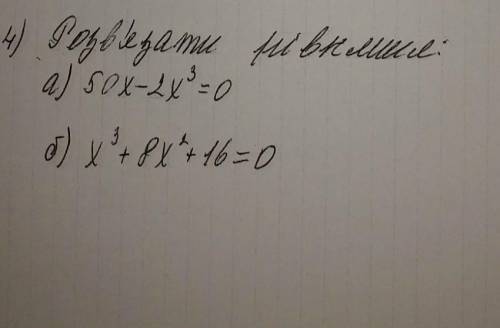 4) Розв'язати рівняння:
а) 50x-2x³=0
б) x³+8x²+16=0